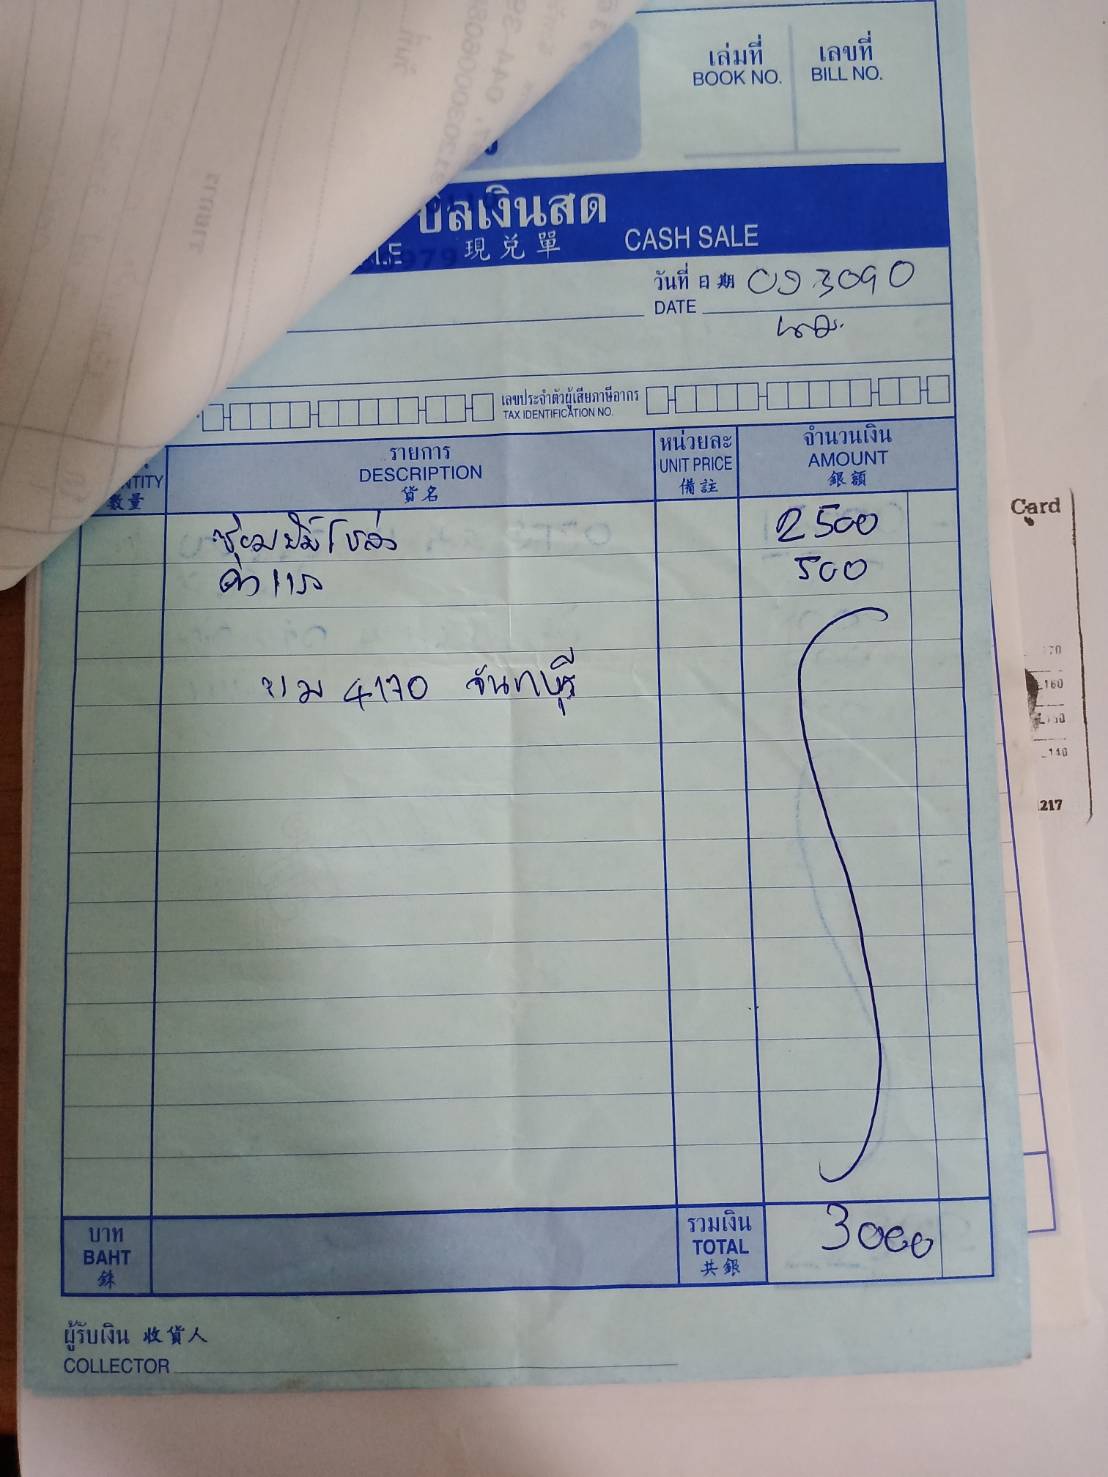 เล่มที่ เลขที่
BOOK NO. BILL NO.
บิลเงินสด
現兑單 CASH SALE
วันที่ 日期 093090
DATE
เลขประจำตัวผู้เสียภาษีอากร
TAX IDENTIFICATION NO.
รายการ หน่วยละ จำนวนเงิน
DESCRIPTION UNIT PRICE AMOUNT
NTITY 貨名 備註 銀額
數量
2500
ค่าแรง 500
4170 จันทบุรี
บาท รวมเงิน 3000
BAHT TOTAL
銖 共銀
ผู้รับเงิน 收貨人
COLLECTOR
Card
217